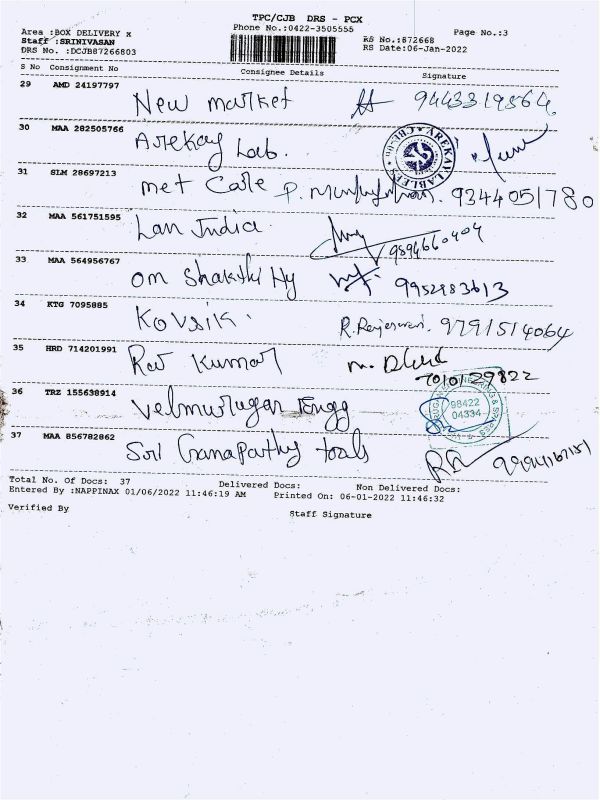 TPC/CJB DRS - PCX
Area :BOX DELIVERY x Phone No.:0422-3505555 Page No.:3
Staff :SRINIVASAN RS No.:872668
DRS No. :DCJB87266803 RS Date:06-Jan-2022
S No Consignment No Consignee Details Signature
29 AMD 24197797 New market 9443319564
30 MAA 282505766 Arekay Lab.
31 SLM 28697213 met Care 9344051780
32 MAA 561751595 Lan India 9894660404
33 MAA 564956767 om Shakthi Hy 9952983613
34 KTG 7095885 Kovsik. R. Rajeswari. 9791514064
35 HRD 714201991 Rav Kumar
7010129822
36 TRZ 155638914 velmurugan Engg 98422
04334
37 MAA 856782862 Sri Ganapathy tools
Total No. of Docs: 37 Delivered Docs: Non Delivered Docs:
Entered By :NAPPINAX 01/06/2022 11:46:19 AM Printed On: 06-01-2022 11:46:32
Verified By Staff Signature